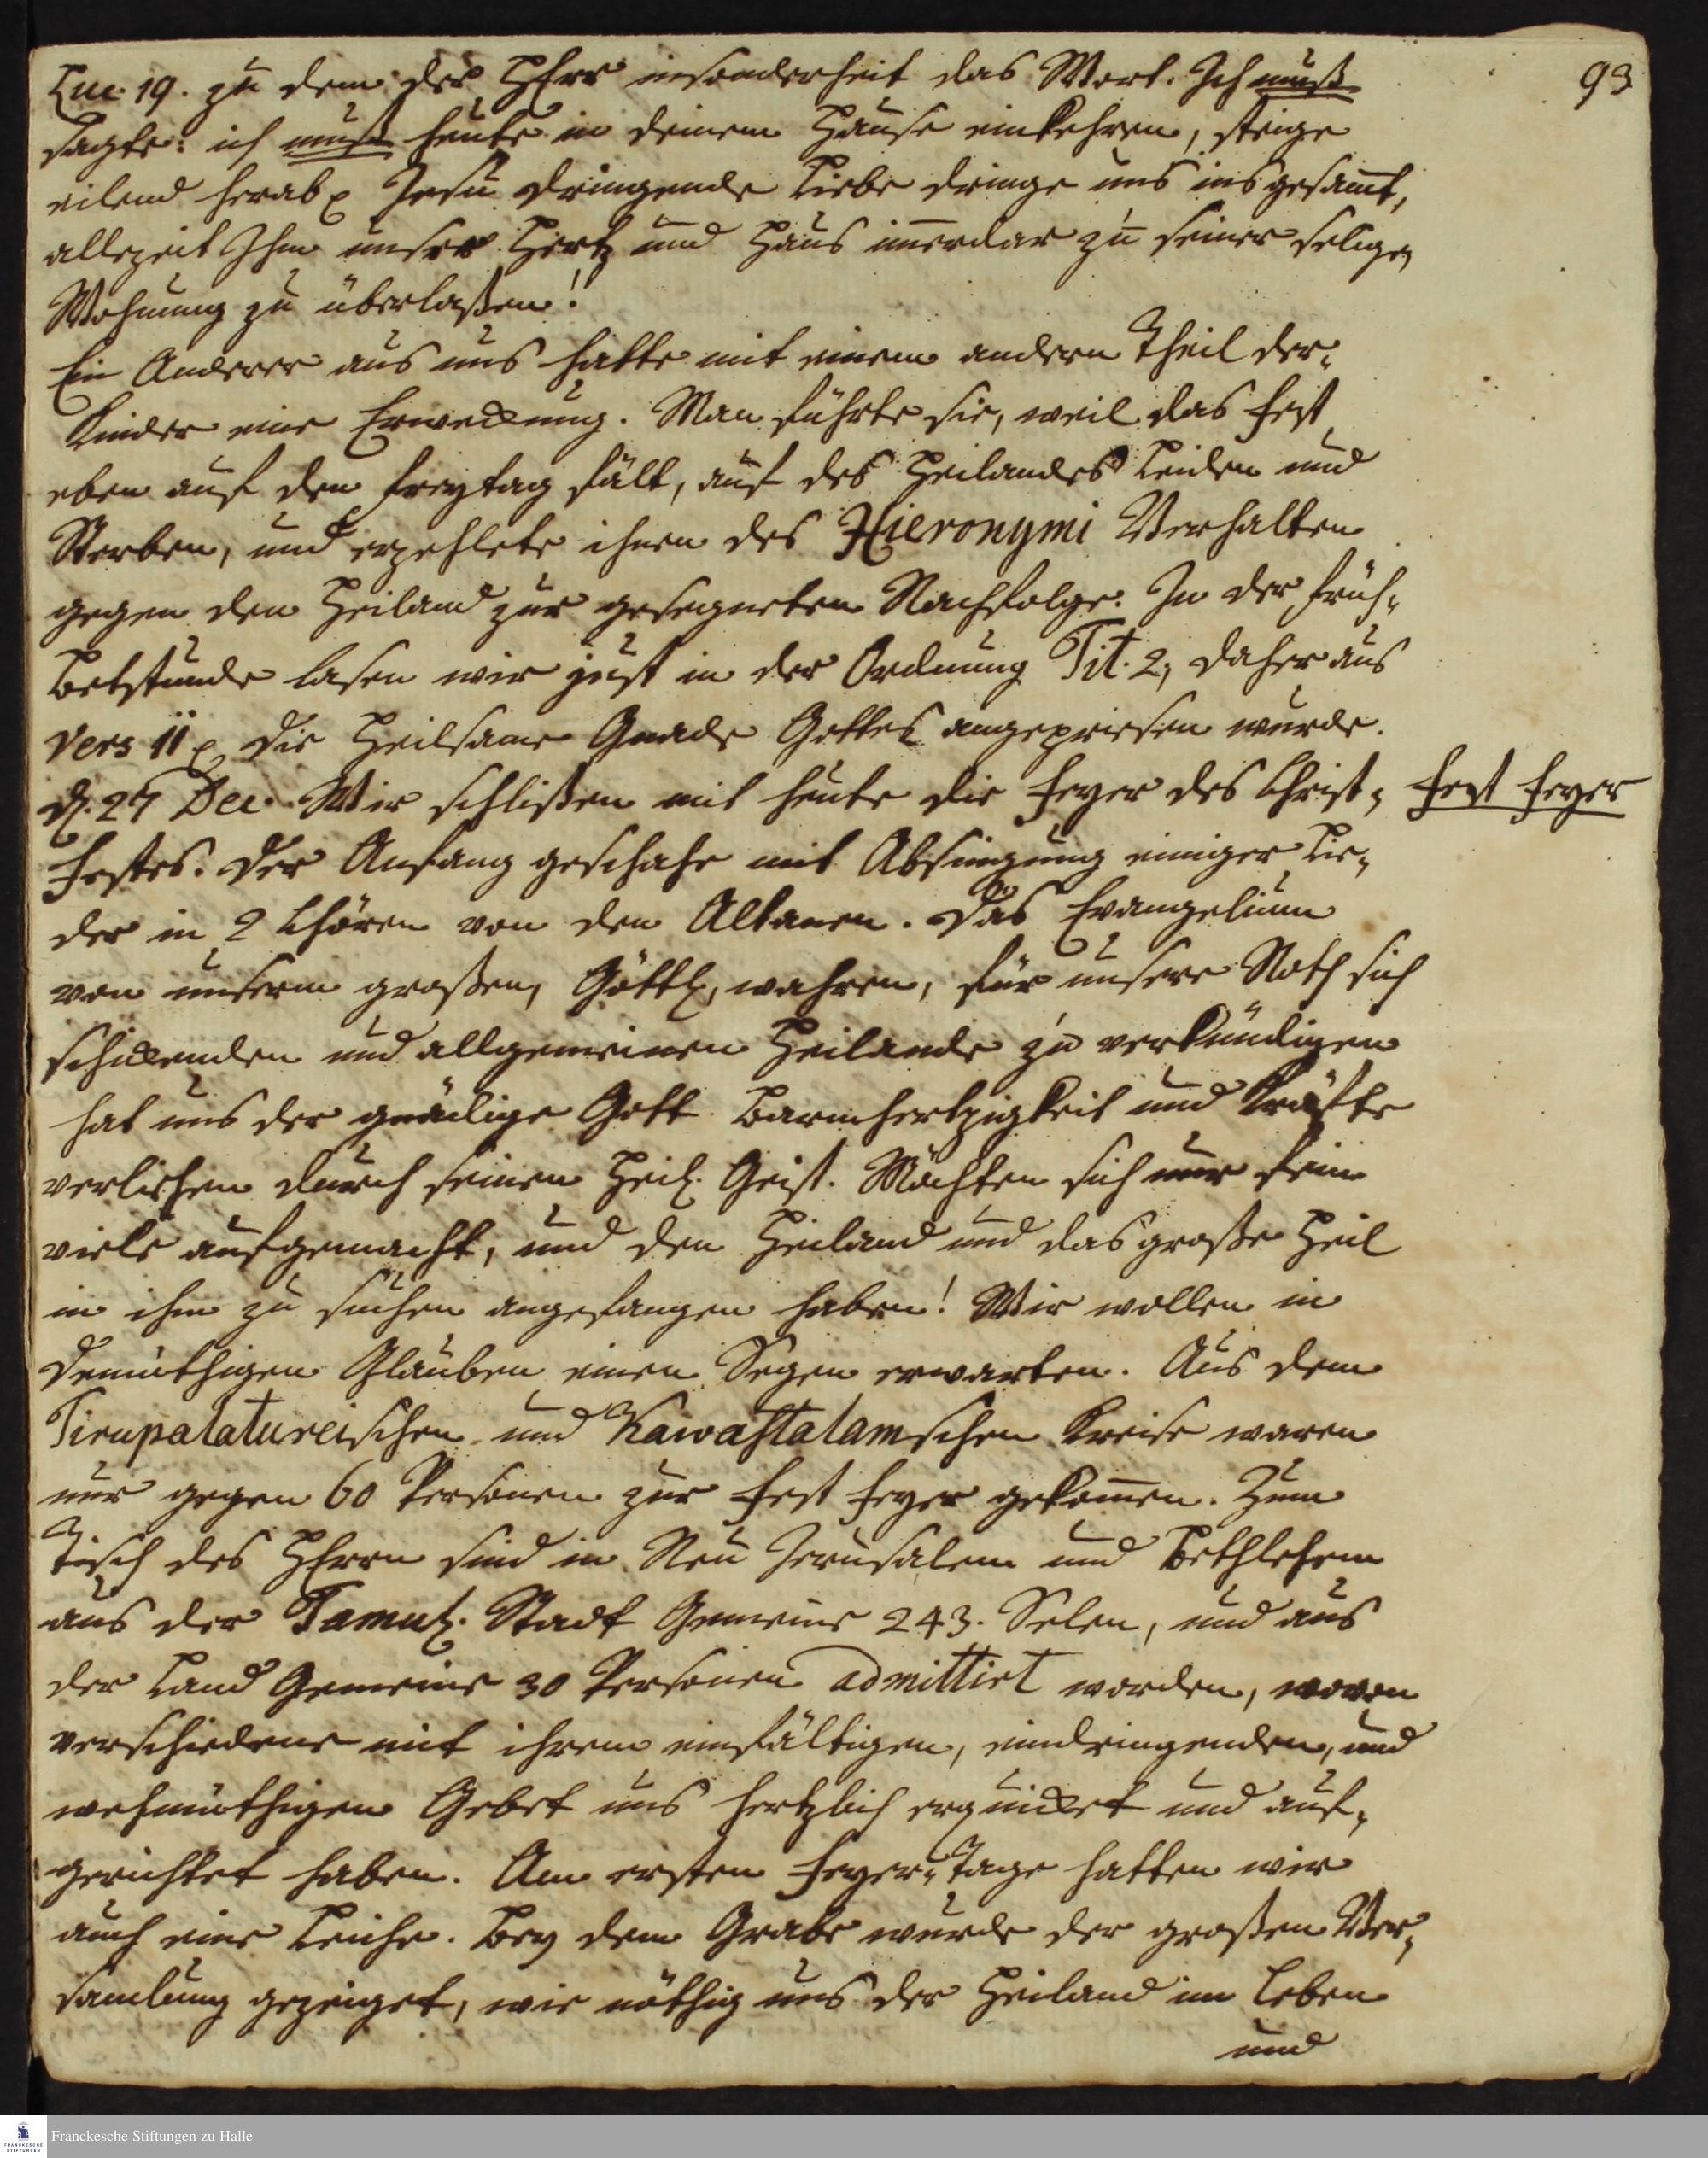 93
Luc. 19. zu dem der HErr insonderheit das Wort. Ich muß
sagte: ich muß heute in deinem Hause einkehren, steige
eilend herab. Jesu dringende Liebe dringe uns insgesamt,
allezeit Ihm unser Hertz und Haus imerdar zu seiner seligen
Wohnung zu überlaßen!
Ein Anderer aus uns hatte mit einem andern Theil der
Kinder eine Erweckung. Man führte sie, weil das Fest
eben auf den Freytag fält, auf des Heilandes Leiden und
Sterben, und erzehlete ihnen des Hieronymi Verhalten
gegen den Heiland zur gesegneten Nachfolge. In der Früh-
Betstunde lasen wir just in der Ordnung Tit. 2, daher aus
vers 11 die Heilsame Gnade Gottes angepriesen wurde.
d. 27 Dec. Wir schlißen mit heute die Feyer des Christ-
Fest Feyer
Festes. Der Anfang geschahe mit Absingung einiger Lie-
der in 2 Chören von den Altanen. Das Evangelium
von unserm großen, Göttl, wahren, für unsere Noth sich
schickenden und allgemeinen Heilande zu verkündigen
hat uns der gnädige Gott Barmhertzigkeit und Kräfte
verliehen durch seinen Heil. Geist. Möchten sich nur fein
viele aufgemacht, und den Heiland und das große Heil
in ihm zu suchen angefangen haben! Wir wollen in
Demüthigen Glauben einen Segen erwarten. Aus dem
Tirupalatureischen und Kawastalamschen Kreise waren
nur gegen 60 Personen zur Fest Feyer gekomen. Zum
Tisch des HErrn sind in Neu Jerusalem und Bethlehem
aus der Tamul. Stadt Gemeine 243. Selen, und aus
der Land Gemeine 30 Personen admittirt worden, wovon
verschiedene mit ihrem einfältigen, eindringenden, und
wehmüthigen Gebet uns hertzlich erquicket und auf-
gerichtet haben. Am ersten Feyer-Tage hatten wir
auch eine Leiche. Bey dem Grabe wurde der großen Ver-
samlung gezeiget, wie nöthig uns der Heiland im Leben
und
Franckesche Stiftungen zu Halle